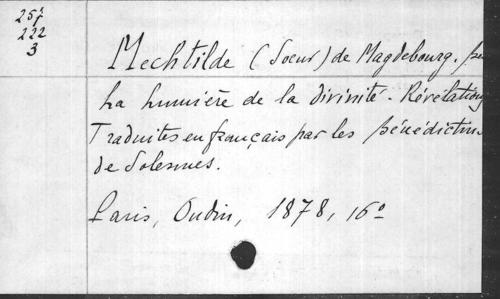 257
222
3
Mechtilde (Soeur) de Magdebourg.
La lumière de la divinité. Révélations
Traduites en français par les bénédictins
de Solesmes.
Paris, Oudin, 1878, 16º